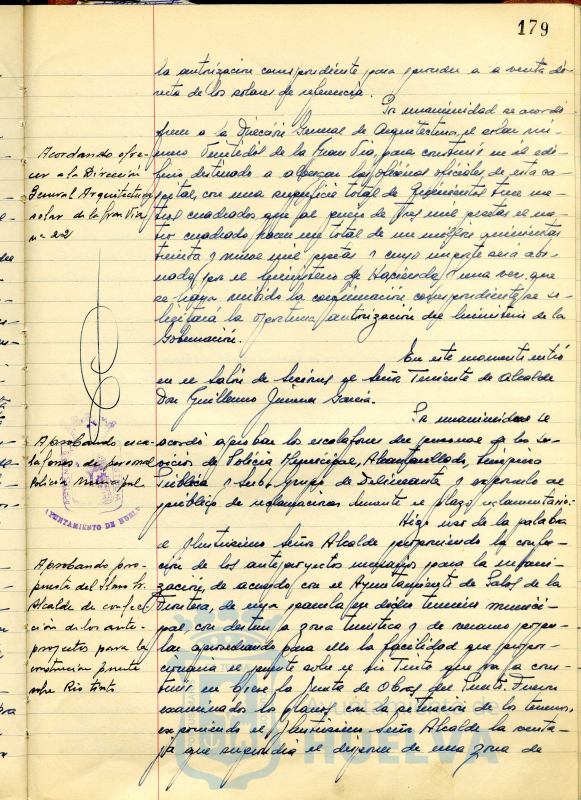 179
la autorización correspondiente para proceder a la venta di-
recta de los solares de referencia.
Por unanimidad se acordó
ofrecer a la Dirección General de Arquitectura, el solar nú-
mero veintidós de la Gran Vía, para construir en él edi-
ficio destinado a albergar las oficinas oficiales de esta ca-
pital, con una superficie total de quinientos trece me-
tros cuadrados que al precio de tres mil pesetas el me-
tro cuadrado hacen un total de un millón quinientas
treinta y nueve mil pesetas y cuyo importe será abo-
nado por el Ministerio de Hacienda y una vez que
se haya recibido la comunicación correspondiente, se so-
licitará la oportuna autorización del Ministerio de la
Gobernación.
Acordando ofre-
cer a la Dirección
General Arquitectura
solar de la Gran Vía
nº 22
En este momento entró
en el Salón de Sesiones el Señor Teniente de Alcalde
Don Guillermo Jimenez García.
Por unanimidad se
acordó aprobar los escalafones del personal de los ser-
vicios de Policía Municipal, Alcantarillado, Limpieza
Pública y Sub-grupo de Delineante y exponerlo al
público de reclamaciones durante el plazo reglamentario.
Aprobando esca-
lafones de personal
Policía Municipal
AYUNTAMIENTO DE HUELVA
Hizo uso de la palabra
el Ilustrísimo Señor Alcalde proponiendo la confec-
ción de los anteproyectos necesarios para la urbani-
zación, de acuerdo con el Ayuntamiento de Palos de la
Frontera, de una parcela en dicho término munici-
pal con destino a zona turística y de recreo popu-
lar aprovechando para ello la facilidad que propor-
cionaría el puente sobre el río Tinto que va a cons-
truir en breve la Junta de Obras del Puerto. Fueron
examinados los planos con la situación de los terrenos,
exponiendo el Ilustrísimo Señor Alcalde la venta-
ja que supondría el disponer de una zona de
Aprobando pro-
puesta del Ilmo Sr.
Alcalde de confec
ción de los ante-
proyectos para la
construcción puente
sobre Rio tinto
Ayuntamiento de
HUELVA